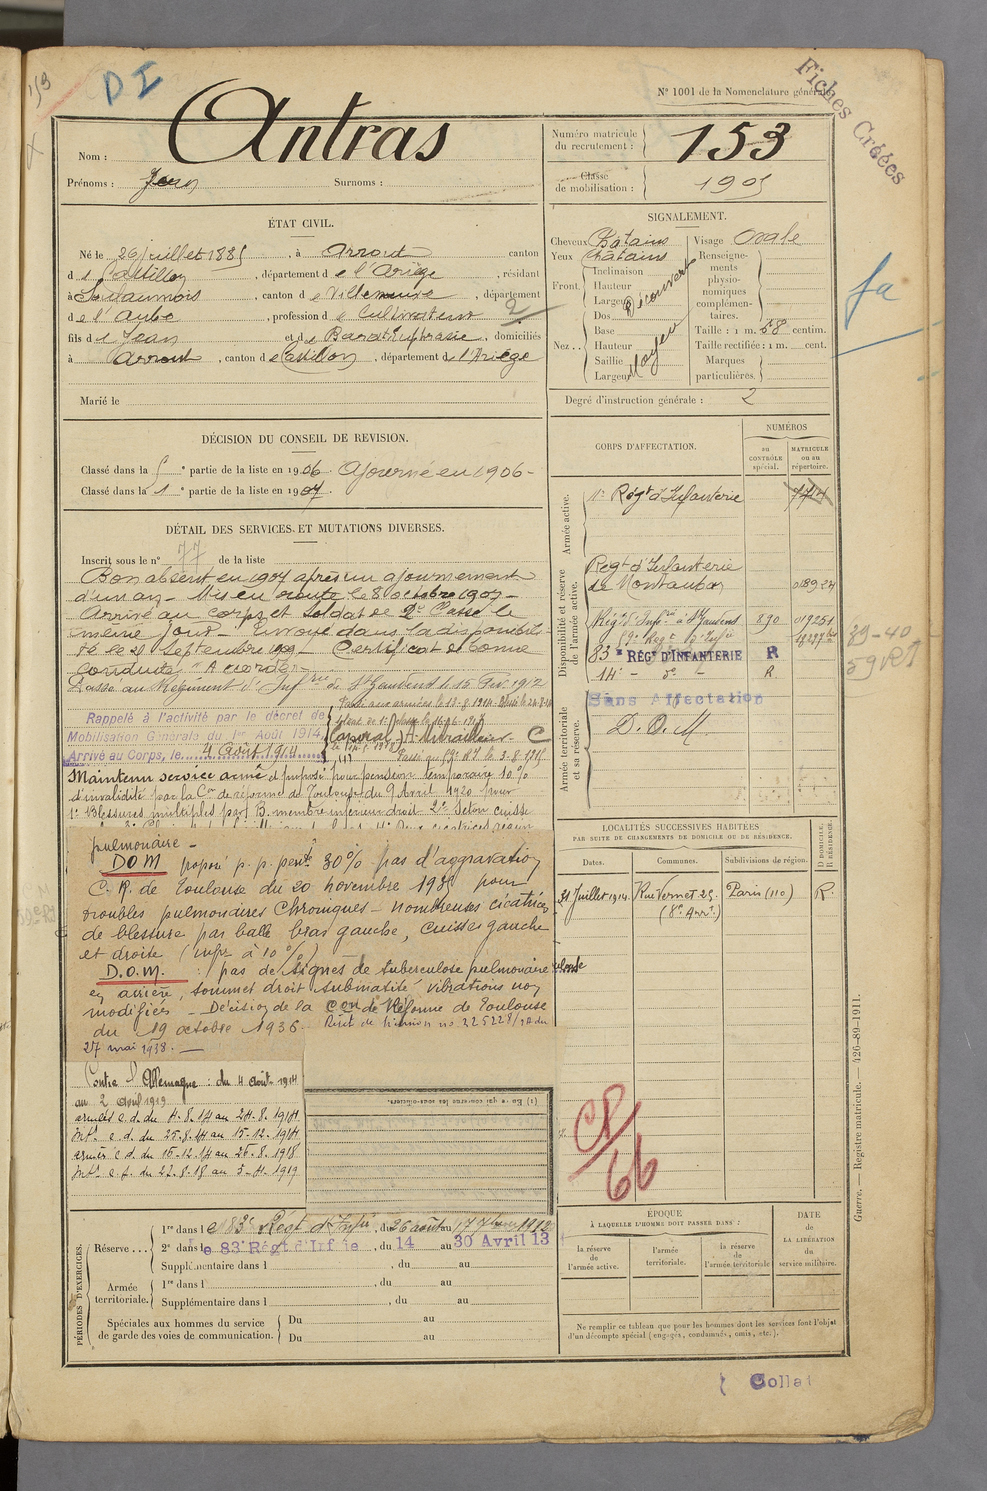 153
D I
Fiches Créées
N° 1001 de la Nomenclature générale.
Nom : Antras
Prénoms : Jean Surnoms :
Numéro matricule du recrutement : 153
Classe de mobilisation : 1905
ÉTAT CIVIL.
Né le 26 juillet 1885, à Arrout canton
d e Castillon, département d e l'Ariège, résidant
à, canton d e, département
d e l'Aude, profession d e Cultivateur
fils d e Jean et d e Barat Euphrasie, domiciliés
à Arrout, canton d e Castillon, département d e l'Ariège
2
Marié le
SIGNALEMENT.
Cheveux Chatains
Yeux Chatains
Front. Inclinaison
Hauteur
Largeur
Découvert
Nez. Dos
Base
Hauteur
Saillie
Largeur
Moyen
Visage Ovale
Renseignements physionomiques complémentaires.
Taille : 1 m. 58 centim.
Taille rectifiée : 1 m. cent.
Marques particulières.
Degré d'instruction générale : 2
fa
DÉCISION DU CONSEIL DE REVISION.
Classé dans la 5e partie de la liste en 1906. Ajourné en 1906 -
Classé dans la 1e partie de la liste en 1907.
DÉTAIL DES SERVICES ET MUTATIONS DIVERSES.
Inscrit sous le n° 77 de la liste
Bon absent en 1907 après un ajournement
d'un an - Mis en route le 8 octobre 1907 -
Arrivé au corps et Soldat de 2e Classe le
même jour - Envoyé dans la disponibili-
té le 28 Septembre 1909 - Certificat de bonne
conduite "Accordé"
Passé au Régiment d'Infrie de St Gaudens le 15 Fév. 1912
Rappelé à l'activité par le décret de
Mobilisation Générale du 1er Août 1914,
Arrivé au Corps, le 4 Août 1914
Passé aux armées le 13-8-1914 - Blessé le 24-8-14
Caporal
C
Maintenu service armé et proposé pour pension temporaire 10 %
d'invalidité par la Con de réforme de Toulouse du 9 Avril 1920 pour
1° Blessures multiples par B. membre inférieur droit 2° Seton cuisse
pulmonaire -
DOM proposé p. p. perte 30 % pas d'aggravation
C. R. de Toulouse du 20 novembre 193 pour
troubles pulmonaires chroniques - nombreuses cicatrices
de blessure par balle bras gauche, cuisses gauche
et droite (infr à 10 %)
D.O.M. : pas de signes de tuberculose pulmonaire
en arrière, sommet droit submatité vibrations non
modifiées - Décision de la Con de Réforme de Toulouse
du 19 octobre 1936.
27 mai 1938. -
Contre l'Allemagne : du 4 août 1914
au 2 avril 1919
armées c. d. du 4.8.14 au 24.8.1914
Intr c. d. du 25.8.14 au 15.12.1914
armées c. d. du 16.12.14 au 26.8.1918
Intr c. f. du 27.8.18 au 3.4.1919
CORPS D'AFFECTATION.
NUMÉROS
au CONTRÔLE spécial.
MATRICULE ou au répertoire.
Armée active.
Régt d'Infanterie
Disponibilité et réserve de l'armée active.
Régt d'Infanterie
de Montauban 018924
Régt d'Infrie à St Gaudens 890 019251
83e RÉGt D'INFANTERIE R
14e - do - R
39-40
59 RI
Armée territoriale et sa réserve.
Sans Affectation
D.O.M.
LOCALITÉS SUCCESSIVES HABITÉES
PAR SUITE DE CHANGEMENTS DE DOMICILE OU DE RÉSIDENCE.
Dates. Communes. Subdivisions de région. D DOMICILE, R RÉSIDENCE.
21 Juillet 1914. Rue Vernet 25. Paris (11e) R.
(8e Arrt)
CP/66
PÉRIODES D'EXERCICES.
Réserve...
1re dans le 83e Régt d'Infie, du 26 août au 17 7bre 1912
2e dans le 83e Régt d'Infie, du 14 au 30 Avril 13
Supplémentaire dans l, du au
Armée territoriale.
1re dans l, du au
Supplémentaire dans l, du au
Spéciales aux hommes du service de garde des voies de communication.
Du au
Du au
ÉPOQUE
À LAQUELLE L'HOMME DOIT PASSER DANS :
la réserve de l'armée active.
l'armée territoriale.
la réserve de l'armée territoriale
DATE de LA LIBÉRATION du service militaire.
Ne remplir ce tableau que pour les hommes dont les services font l'objet
d'un décompte spécial (engagés, condamnés, omis, etc.).
Guerre. — Registre matricule. — 426-89-1911.
Collat